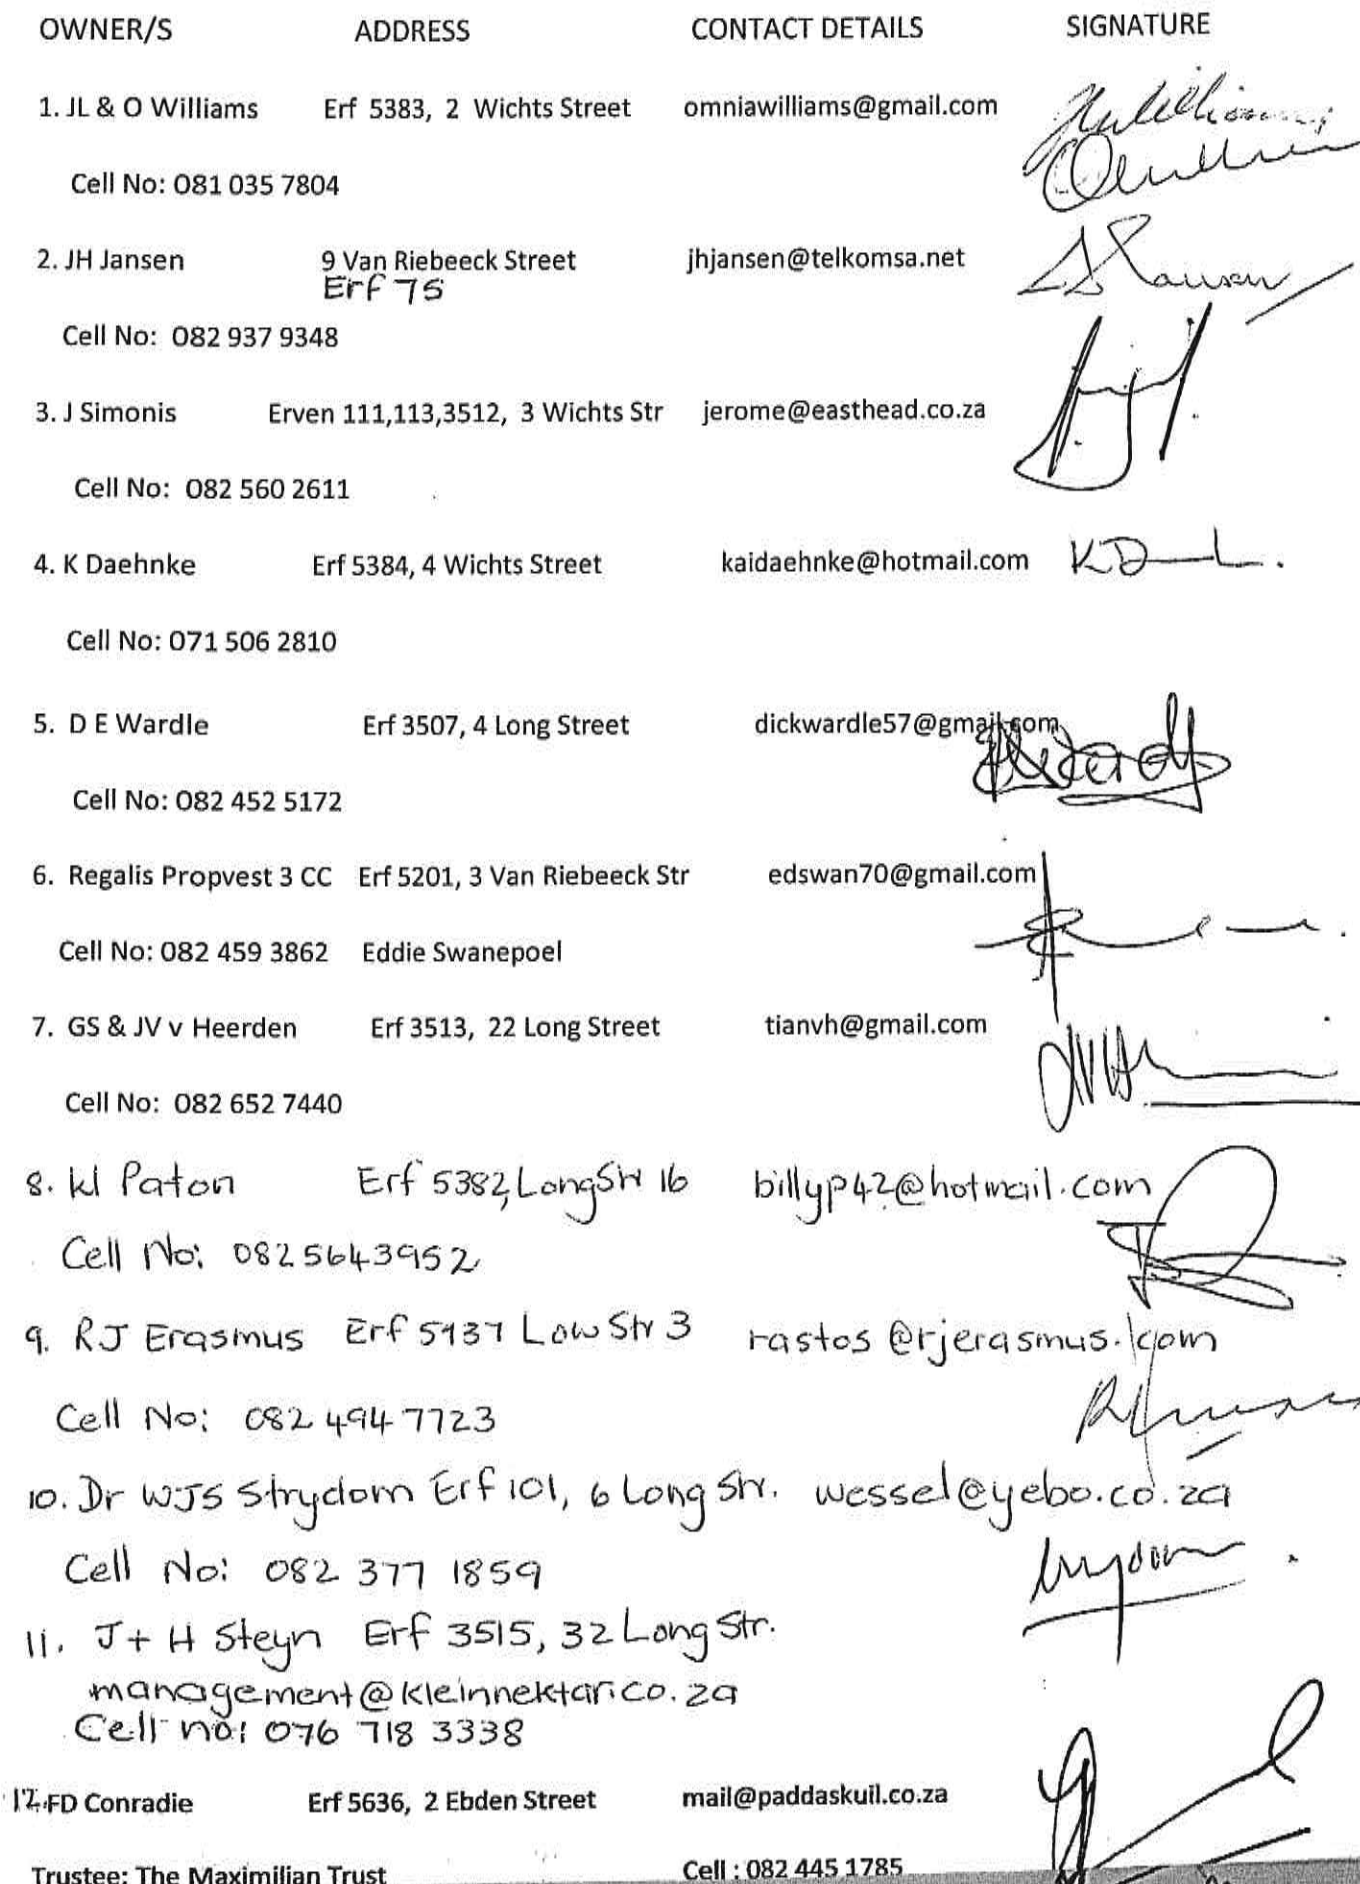 OWNER/S ADDRESS CONTACT DETAILS SIGNATURE
1. JL & O Williams Erf 5383, 2 Wichts Street omniawilliams@gmail.com
Cell No: 081 035 7804
2. JH Jansen 9 Van Riebeeck Street jhjansen@telkomsa.net
Erf 75
Cell No: 082 937 9348
3. J Simonis Erven 111,113,3512, 3 Wichts Str jerome@easthead.co.za
Cell No: 082 560 2611
4. K Daehnke Erf 5384, 4 Wichts Street kaidaehnke@hotmail.com
Cell No: 071 506 2810
5. D E Wardle Erf 3507, 4 Long Street dickwardle57@gmail.com
Cell No: 082 452 5172
6. Regalis Propvest 3 CC Erf 5201, 3 Van Riebeeck Str edswan70@gmail.com
Cell No: 082 459 3862 Eddie Swanepoel
7. GS & JV v Heerden Erf 3513, 22 Long Street tianvh@gmail.com
Cell No: 082 652 7440
8. Paton Erf 5382, Long Str 16 billyp42@hotmail.com
Cell No: 0825643952
9. RJ Erasmus Erf 5937 Low Str 3 rastos@rjerasmus.com
Cell No: 082 494 7723
10. Dr WJS Strydom Erf 101, 6 Long Str. wessel@yebo.co.za
Cell No: 082 377 1859
11. J + H Steyn Erf 3515, 32 Long Str.
management@kleinnektar.co.za
Cell no: 076 718 3338
12. FD Conradie Erf 5636, 2 Ebden Street mail@paddaskuil.co.za
Trustee: The Maximilian Trust Cell : 082 445 1785